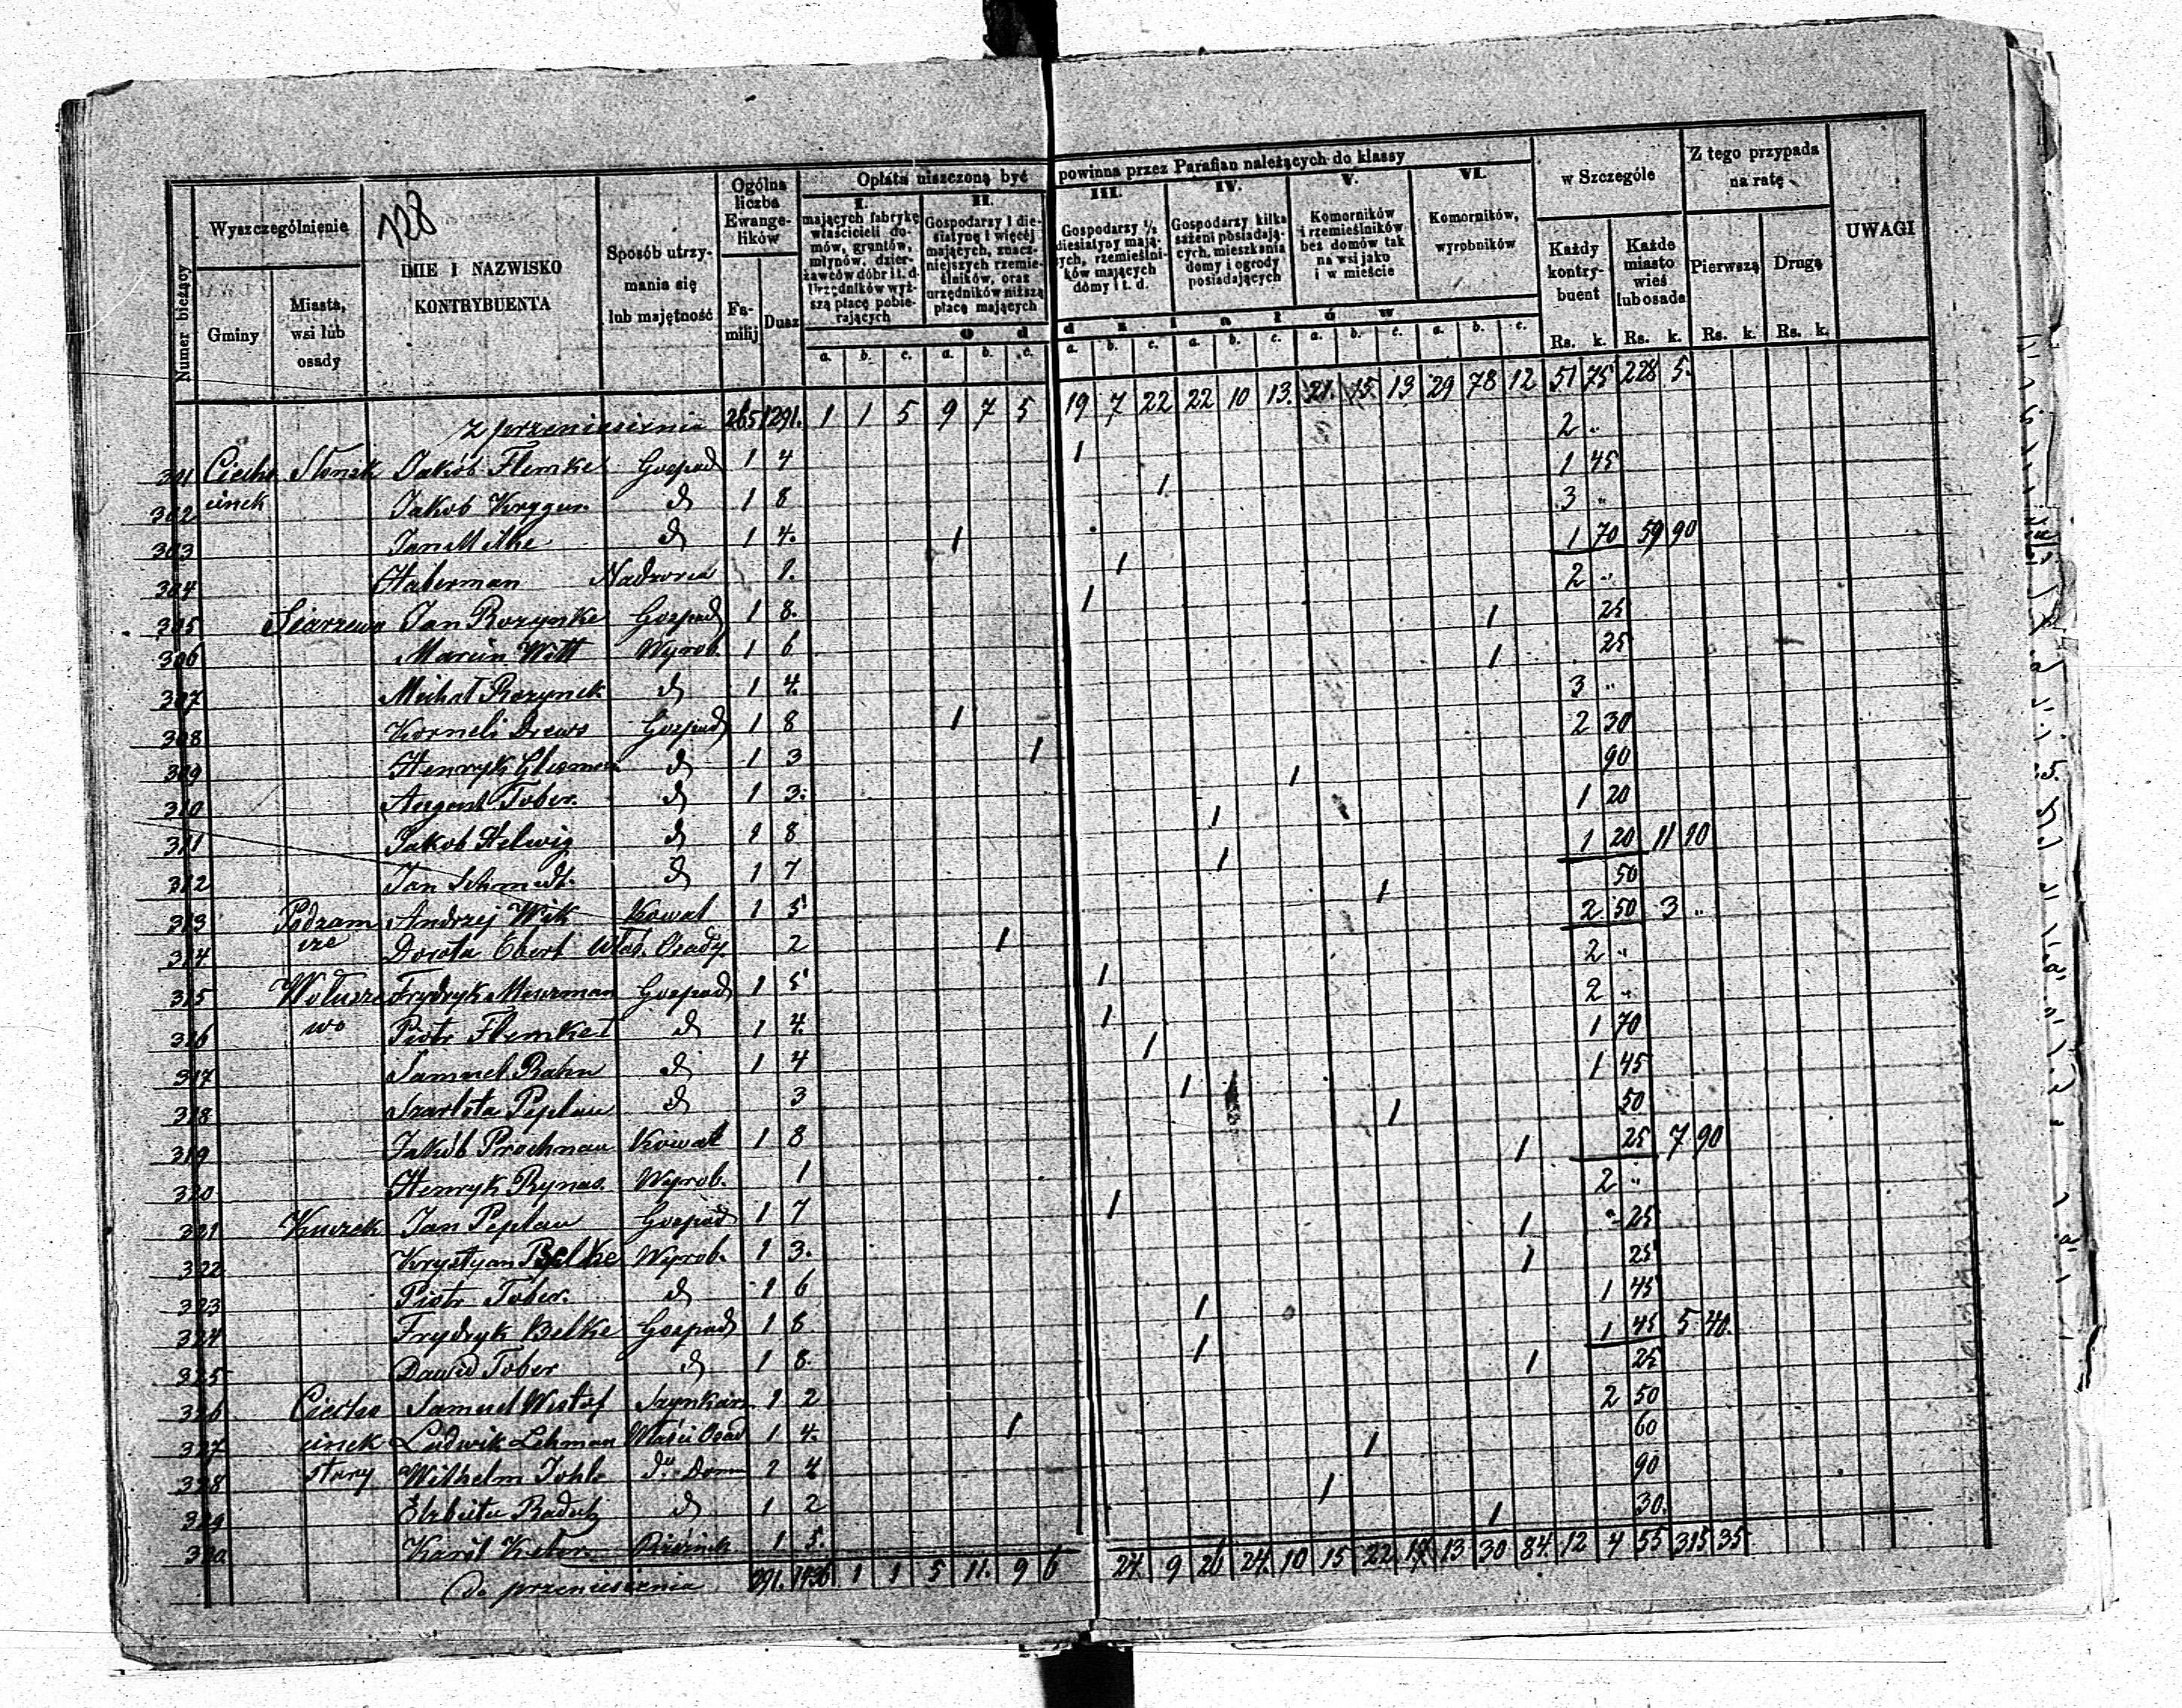 128
Numer bieżący
Wyszczególnienie
Gminy
Miasta, wsi lub osady
IMIE I NAZWISKO KONTRYBUENTA
Sposób utrzymania się lub majętność
Ogólna liczba Ewangelików
Familij
Dusz
Opłata uiszczoną być powinna przez Parafian należących do klassy
I. mających fabrykę właścicieli domów, gruntów, młynów, dzierżawców dóbr i t. d. Urzędników wyższą płacę pobierających
II. Gospodarzy 1 diesiatynę i więcej mających, znaczniejszych rzemieślników, oraz urzędników niższą płacę mających
III. Gospodarzy ½ diesiatyny mających, rzemieślników mających domy i t. d.
IV. Gospodarzy kilka sażeni posiadających, mieszkania domy i ogrody posiadających
V. Komorników i rzemieślników bez domów tak na wsi jako i w mieście
VI. Komorników, wyrobników
O d d z i a ł ó w
a. b. c. a. b. c. a. b. c. a. b. c. a. b. c. a. b. c.
w Szczególe
Każdy kontrybuent
Rs. k.
Każde miasto wieś lub osada
Rs. k.
Z tego przypada na ratę
Pierwszą
Rs. k.
Drugą
Rs. k.
UWAGI
z przeniesienia 265 1291. 1 1 5 9 7 5 19 7 22 22 10 13. 21. 15. 13 29 78 12 51 75 228 5.
301 Ciecho Słonsk Jakób Flemke Gospod 1 4 1 2 "
302 cinek Jakob Kryger d 1 8 1 1 45
303 Jan Milke d 1 4. 1 3 "
304 Haberman Nadzorca 1. 1 1 70 59 90
305 Siarzewo Jan Rozynke Gospod 1 8. 1 2 "
306 Marcin Witt Wyrob. 1 6 1 25
307 Michał Rozynek d 1 4. 1 25
308 Korneli Drews Gospod 1 8 1 3 "
309 Henryk d 1 3 1 2 30
310 August Tober. d 1 3. 1 90
311 Jakob Helwig d 1 8 1 1 20
312 Jan Schmidt. d 1 7 1 1 20 11 10
313 Podzam Andrzej Wik Kowal 1 5 1 50
314 cze Dorota Ebert Właś. Osady. 2 1 2 50 3 "
315 Wołusze Frydryk Meurman Gospod 1 5 1 2 "
316 wo Piotr Flemke d 1 4. 1 2 "
317 Samuel Rahn d 1 4 1 1 70
318 Szarlota Peplau d 3 1 1 45
319 Jakób Prochnau Kowal 1 8 1 50
320 Henryk Rynas. Wyrob. 1 1 25 7 90
321 Kuczek Jan Peplau Gospod 1 7 1 2 "
322 Krystyan Belke Wyrob. 1 3. 1 25
323 Piotr Tober. d 1 6 1 25
324 Frydryk Belke Gospod 1 8 1 1 45
325 Dawid Tober d 1 8. 1 1 45 5 40.
326 Ciecho Samuel Westof Szynkarz 1 2 1 25
327 cinek Ludwik Lehman Właści Osad 1 4. 1 2 50
328 stary Wilhelm d° Dom 1 4 1 60
329 Elzbieta Raduk d 1 2 1 90
330 Karól 1 5. 1 30.
do przeniesienia 291. 1436 1 1 5 11. 9 6 24. 9 26 24. 10 15 22 13 30 84. 12 4 55 315 35